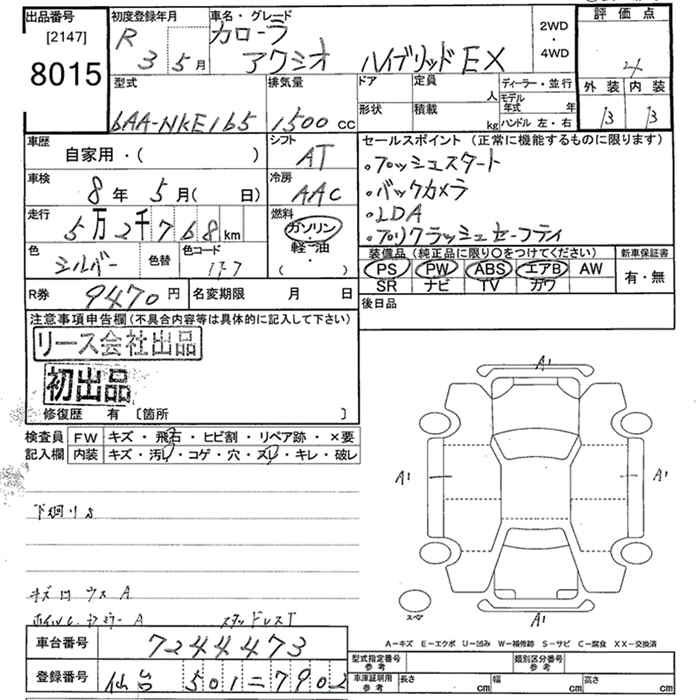 出品番号
[2147]
8015
初度登録年月
R 3 5月
車名・グレード
カローラ
アクシオ ハイブリッドEX
2WD
・
4WD
評価点
4
外装 内装
B B
型式
6AA-NKE165
排気量
1500 cc
ドア 定員 人
形状 積載 kg
ディーラー・並行
モデル年式 年
ハンドル 左・右
車歴
自家用・( )
シフト
AT
車検
8年 5月( 日)
冷房
AAC
走行
5万2千768km
燃料
ガソリン
軽油
( ・ )
色 シルバー 色替 色コード 1F7
セールスポイント(正常に機能するものに限ります)
・プッシュスタート
・バックカメラ
・LDA
・プリクラッシュセーフティ
装備品(純正品に限り○をつけてください) 新車保証書
PS PW ABS エアB AW 有・無
SR ナビ TV ガワ
後日品
R券 9470円 名変期限 月 日
注意事項申告欄(不具合内容等は具体的に記入して下さい)
リース会社出品
初出品
修復歴 有 〔箇所 〕
検査員 記入欄
FW キズ・飛石・ヒビ割・リペア跡・×要
内装 キズ・汚レ・コゲ・穴・スレ・キレ・破レ
下廻りS
A1
A1 A1
A1
スペア
キズ
A
A
A-キズ E-エクボ U-凹み W-補修跡 S-サビ C-腐食 XX-交換済
車台番号 7244473
登録番号 仙台 501 = 7902
型式指定番号 参考 類別区分番号 参考
車庫証明用 参考 長さ cm 幅 cm 高さ cm